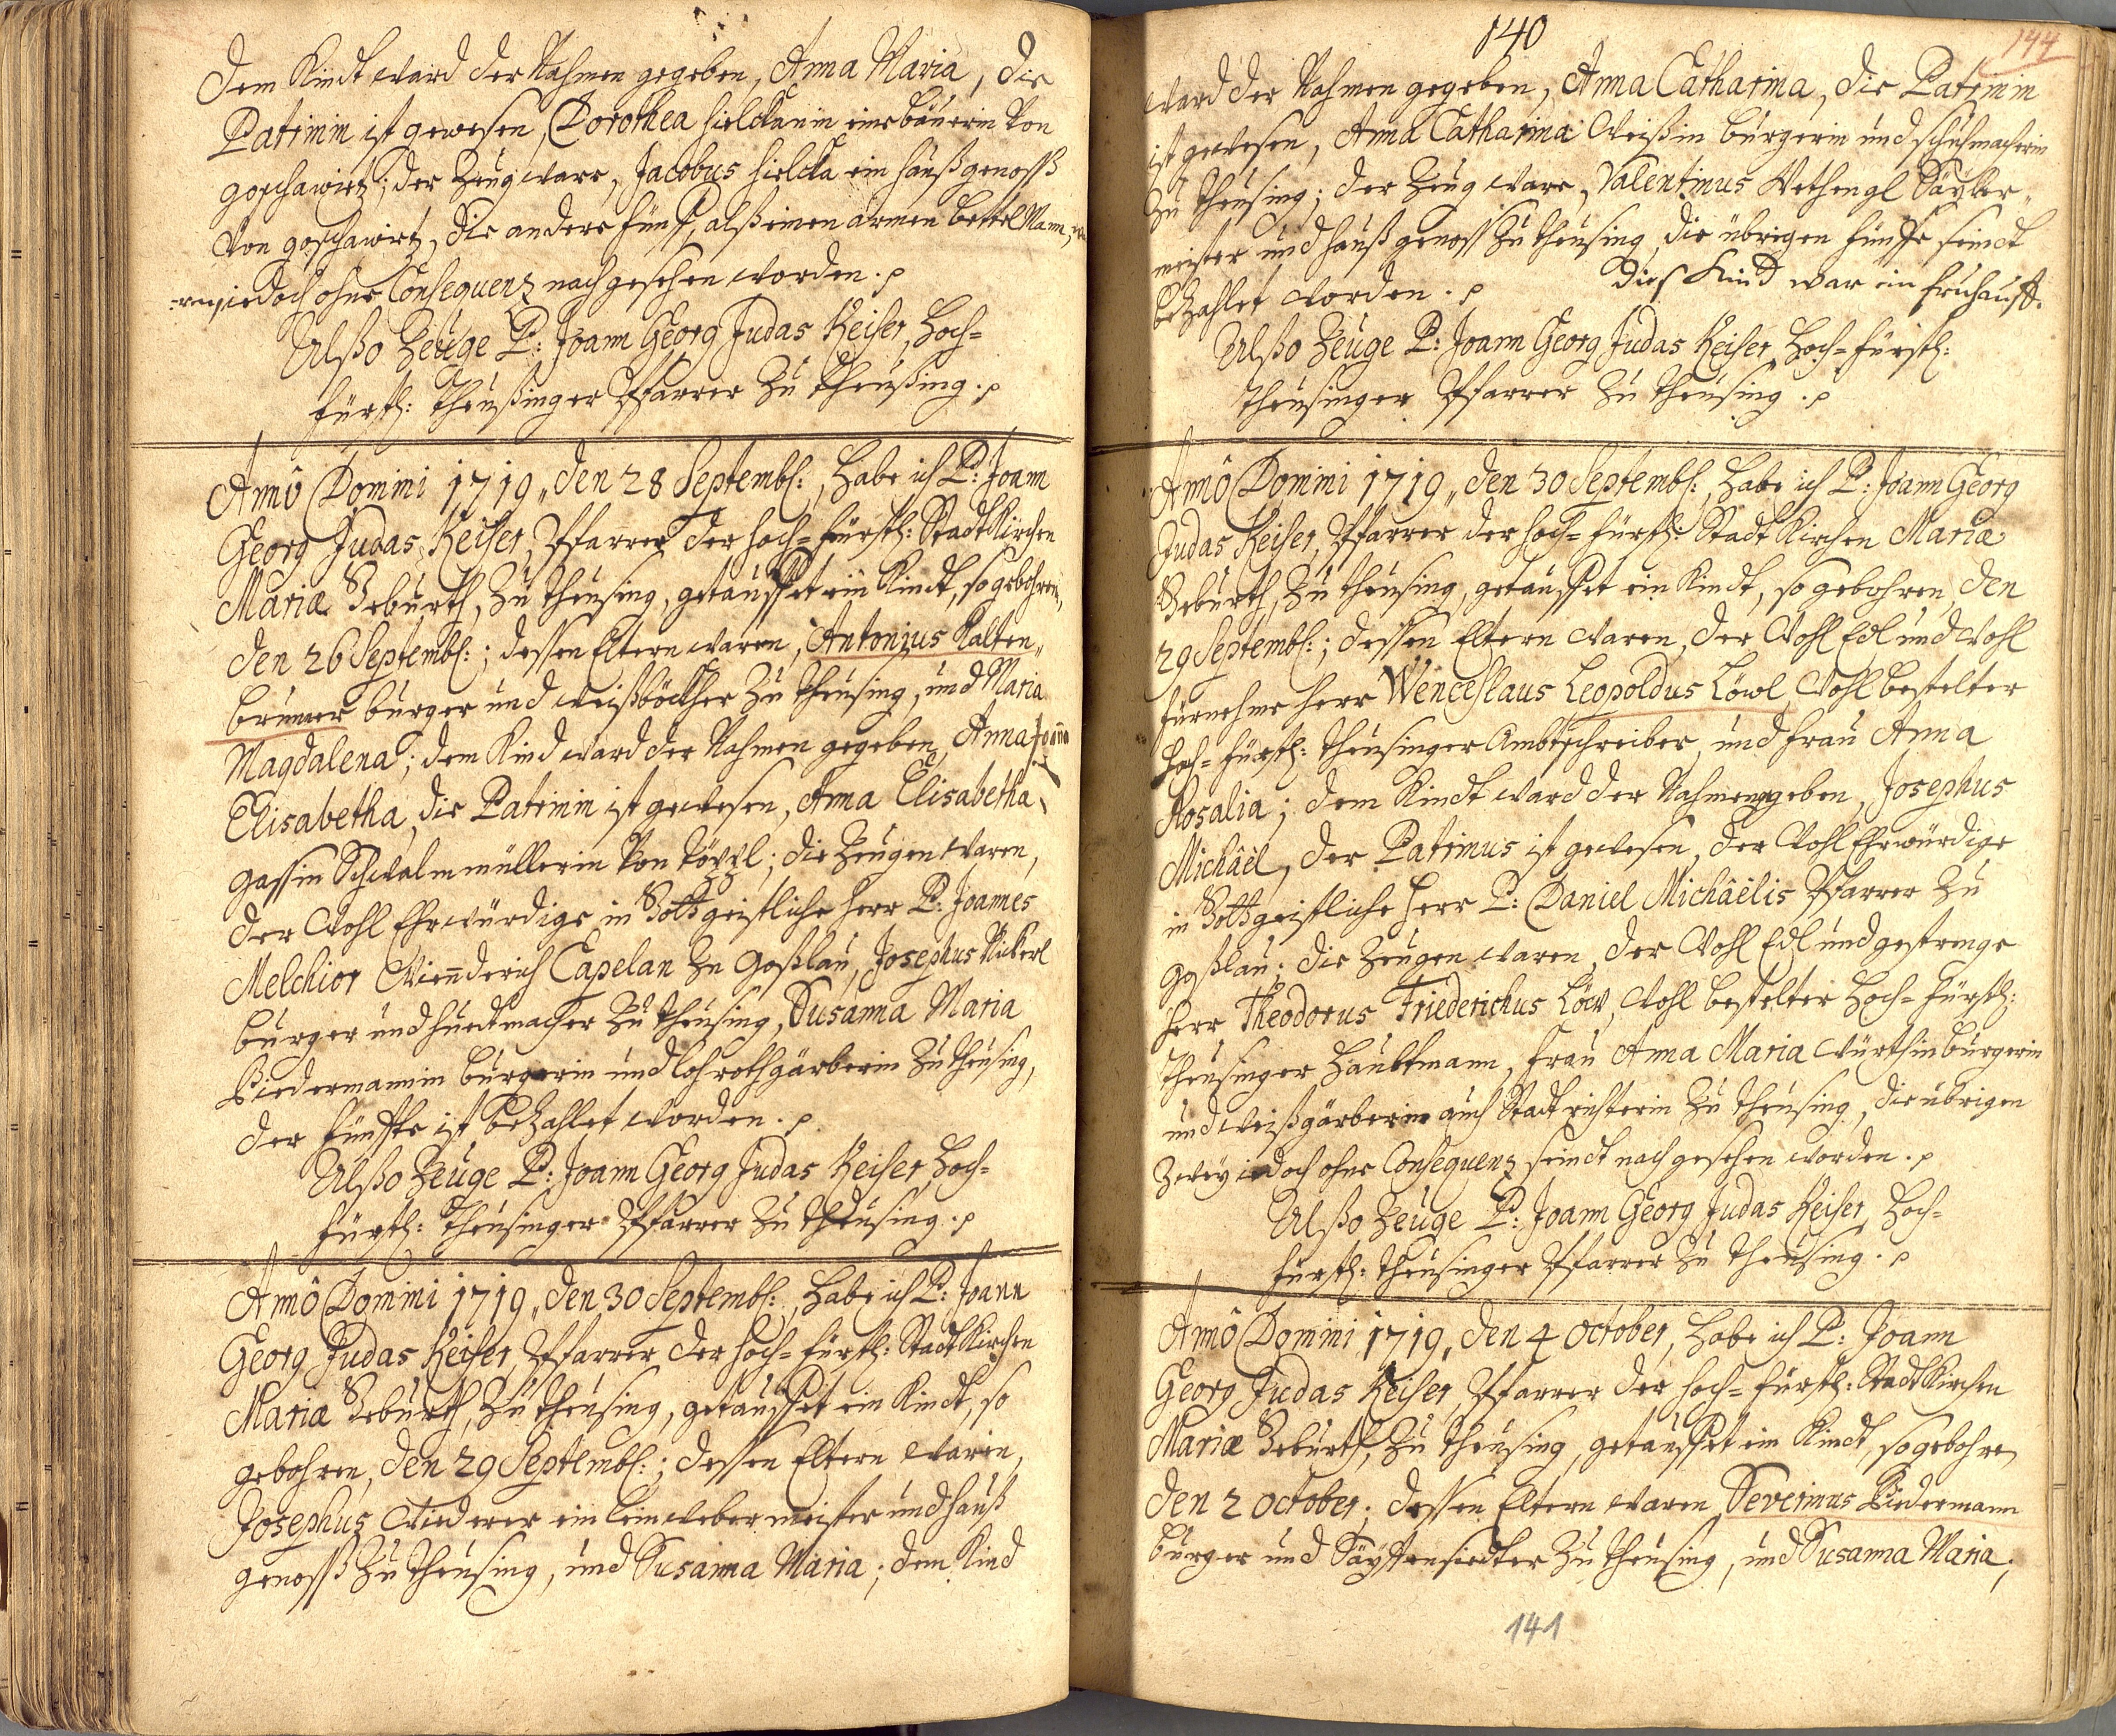 dem Kindt ward der Nahmen gegeben, Anna Maria, die
Patrinin ist gewesen, Dorothea hielckanin eine bäuerin von
goschawitz; der Zeug ware, Jacobus hielcka ein haußgenoss
von goschawitz, die andere fünf, alß einen armen bettel Mann,
iedoch ohne Consequenz nachgesehen worden.
Alßo Zeüge P: Joann Georg Judas Keiser, Hoch=
fürstl: Theußinger Pfarrer Zu Theußing.
Annô Domini 1719, den 28 Septembs:, habe ich P: Joann
Georg Judas Keiser, Pfarrer der hoch=fürstl: Stadt Kirchen
Mariæ Geburth, Zu Theusing, getauffet ein Kindt, so gebohren,
den 26 Septembs:; dessen Eltern waren, Antonius Kalten„
brunner burger und weißböckher Zu Theusing, und Maria
Magdalena; dem Kind ward der Nahmen gegeben, Anna Joanna
Elisabetha, die Patrinin ist gewesen, Anna Elisabetha
gassin Schwalmmüllerin von ; die Zeugen waren,
der Wohl Ehrwürdige in Gott geistliche Herr P: Joannes
Melchior Capelan Zu Goßlau, Josephus Nickerl
burger und huedtmacher Zu Theusing, Susanna Maria
Biedermannin burgerin und lohrothgärberin Zu Theusing,
der fünffte ist beZahlet worden.
Alßo Zeüge P: Joann Georg Judas Keiser, Hoch=
fürstl: Theusinger Pfarrer Zu Theusing.
Annô Domini 1719, den 30 Septembs:, habe ich P: Joann
Georg Judas Keiser, Pfarrer der hoch=fürstl: Stadt Kirchen
Mariæ Geburth, Zu Theusing, getauffet ein Kindt, so
gebohren, den 29 Septembs:; dessen Eltern waren,
Josephus Wiederer ein leinweber meister und hauß
genoss Zu Theusing, und Susanna Maria; dem Kind
140
144
ward der Nahmen gegeben, Anna Catharina, die Patrinin
ist gewesen, Anna Catharina Weißin burgerin und schuhmacherin
Zu Theusing; der Zeug ware, Valentinus Wethengl
meister und haußgenoss Zu Theusing, die übrigen fünffe seindt
beZahlet worden. Dieß Kind war ein
Alßo Zeüge P: Joann Georg Judas Keiser, Hoch=fürstl:
Theusinger Pfarrer Zu Theusing.
Annô Domini 1719, den 30 Septembs:, habe ich P: Joann Georg
Judas Keiser, Pfarrer der hoch=fürstl: Stadt Kirchen Mariæ
Geburth, Zu Theusing, getauffet ein Kindt, so gebohren, den
29 Septembs:; dessen Eltern waren, der Wohl Edl und Wohl
fürnehme Herr Wenceslaus Leopoldus Löwl, Wohl bestelter
Hoch=fürstl: Theusinger Ambtschreiber, und frau Anna
Rosalia; dem Kindt ward der Nahmen geben, Josephus
Michâël, der Patrinus ist gewesen, der Wohl Ehrwürdige
in Gott geistliche Herr P: Daniel Michâëlis Pfarrer Zu
Goßlau; die Zeugen waren, der Wohl Edl und gestrenge
Herr Theodorus Friederichus Löw, Wohl bestelter Hoch=fürstl:
Theusinger Haubtmann, frau Anna Maria Würthin burgerin
und weißgärberin auch Stadt richterin Zu Theusing, die übrigen
Zweÿ iedoch ohne Consequenz seindt nachgesehen worden.
Alßo Zeüge P: Joann Georg Judas Keiser, Hoch=
fürstl: Theusinger Pfarrer Zu Theusing.
Annô Domini 1719, den 4 October, habe ich P: Joann
Georg Judas Keiser, Pfarrer der hoch=fürstl: Stadt Kirchen
Mariæ Geburth, Zu Theusing, getauffet ein Kindt, so gebohren
den 2 October; dessen Eltern waren, Severinus Biedermann
burger und Saÿffensiedter Zu Theusing, und Susanna Maria;
141